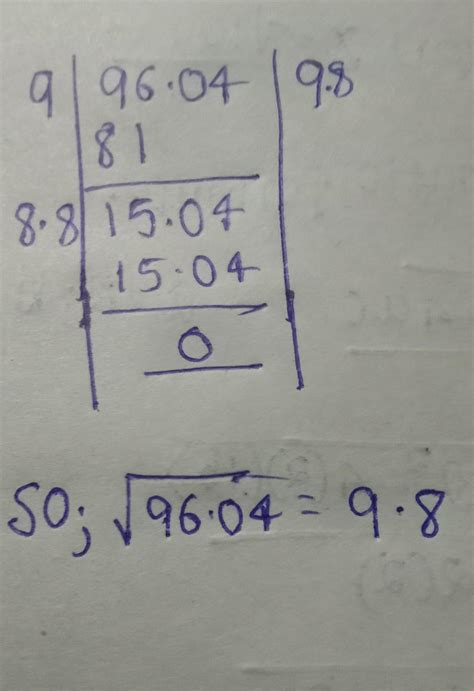 9 96.04 9.8
81
8.8 15.04
15.04
0
SO; √96.04 = 9.8